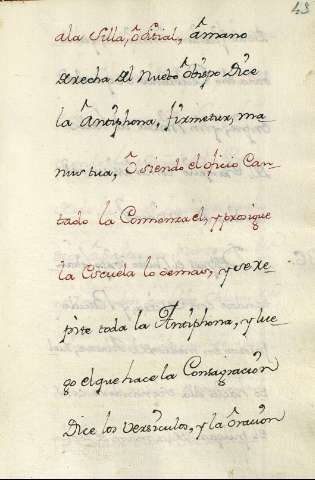 43
ala Silla, ô sitial, â mano
derecha del Nuebo Obispo Dice
la Antiphona, firmetur, ma-
nus tua, ô siendo el oficio Can-
tado la Comienza el, y prosigue
la Escuela lo demas, y se xe-
pite toda la Antiphona, y lue-
go el que hace la Consagracion
Dice los versiculos, y la ôracion